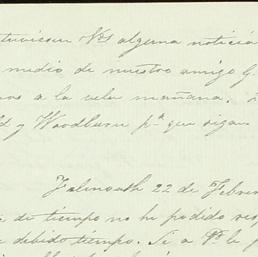 tuviesen Vds alguna noticia
medio de nuestro amigo G.
a la vela mañana.
y Woodburn pª que sigan
Falmouth 22 de Febrer
de tiempo no he podido res
debido tiempo. Si a Vd le p